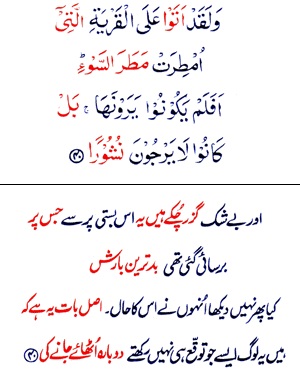 وَلَقَدْ اَتَوْا عَلَى الْقَرْيَةِ الَّتِيْٓ
اُمْطِرَتْ مَطَرَ السَّوْءِ ؕ
اَفَلَمْ يَكُوْنُوْا يَرَوْنَهَا ۚ بَلْ
كَانُوْا لَا يَرْجُوْنَ نُشُوْرًا ﴿۴۰﴾
اور بے شک گزر چکے ہیں یہ اس بستی پر سے جس پر
برسائی گئی تھی بدترین بارش
کیا پھر نہیں دیکھا اُنہوں نے اس کا حال۔ اصل بات یہ ہے کہ
ہیں یہ لوگ ایسے جو توقع ہی نہیں رکھتے دوبارہ اُٹھائے جانے کی ﴿۴۰﴾